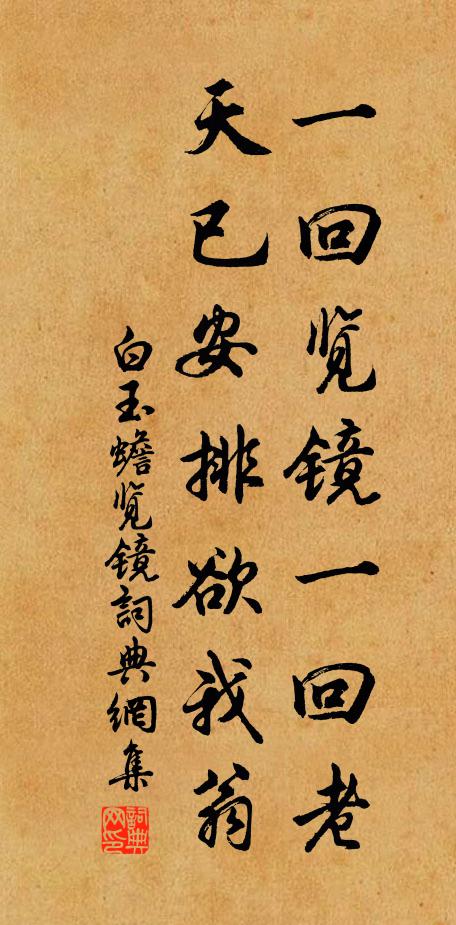 一回览镜一回老
天已安排欲我翁
白玉蟾览镜詞典網集
詞典网印